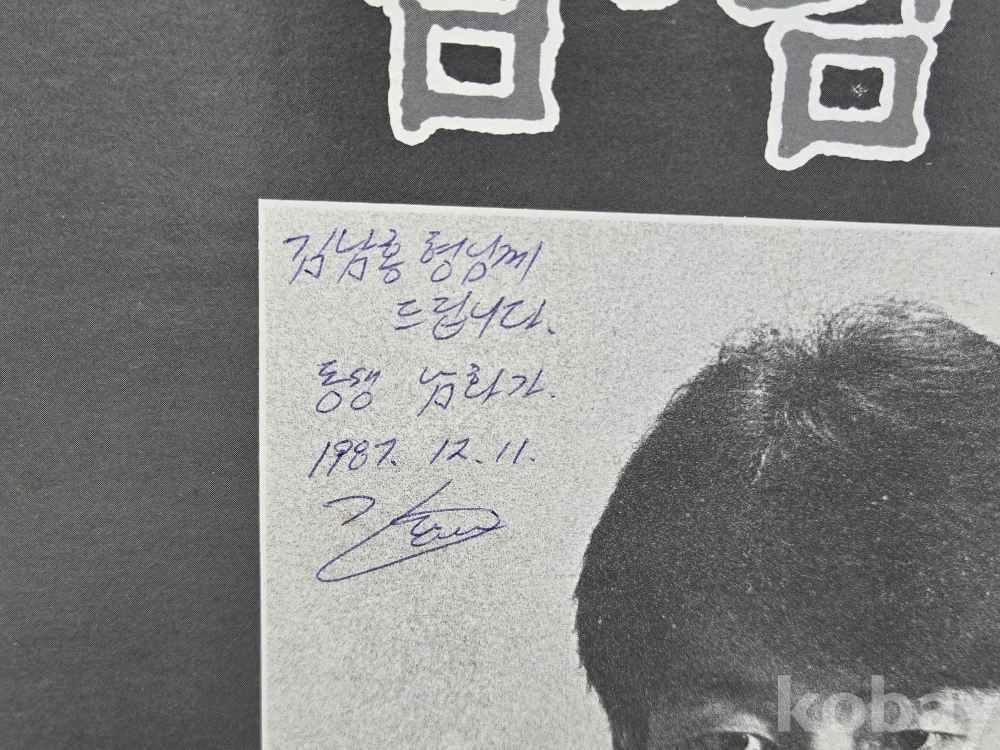 김남흥 형님께
드립니다.
동생 남화가.
1987. 12. 11.
kobay